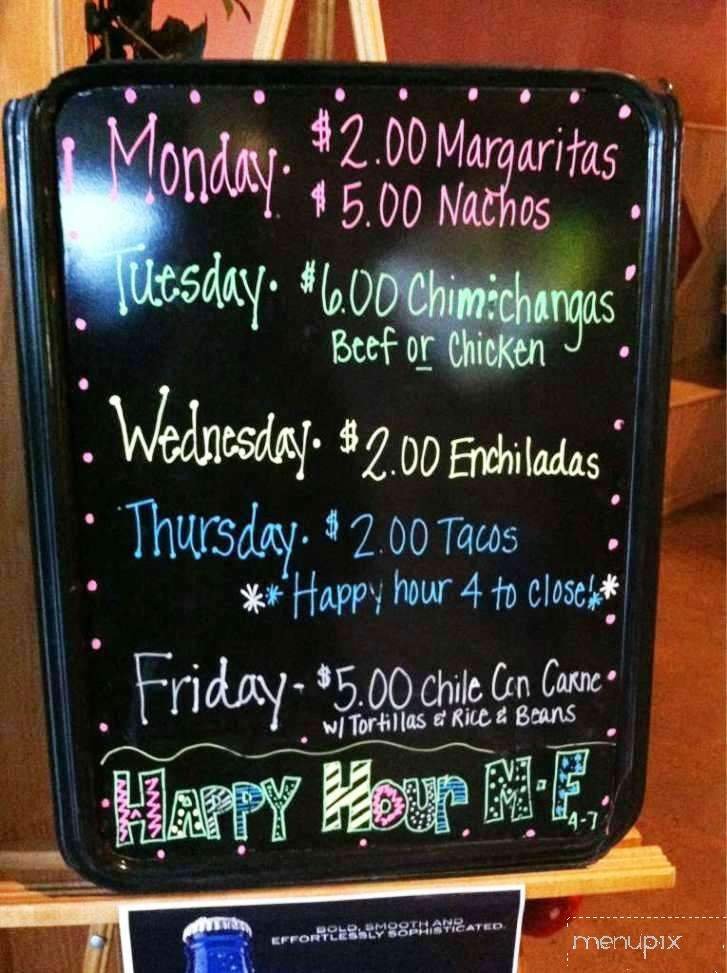 Monday. $2.00 Margaritas
$5.00 Nachos
Tuesday. $6.00 Chimichangas
Beef or Chicken
Wednesday. $2.00 Enchiladas
Thursday. $2.00 Tacos
** Happy hour 4 to close! **
Friday- $5.00 Chile Con Carne
w/ Tortillas & Rice & Beans
HAPPY HOUR M-F
4-7
BOLD, SMOOTH AND
EFFORTLESSLY SOPHISTICATED.
menupix